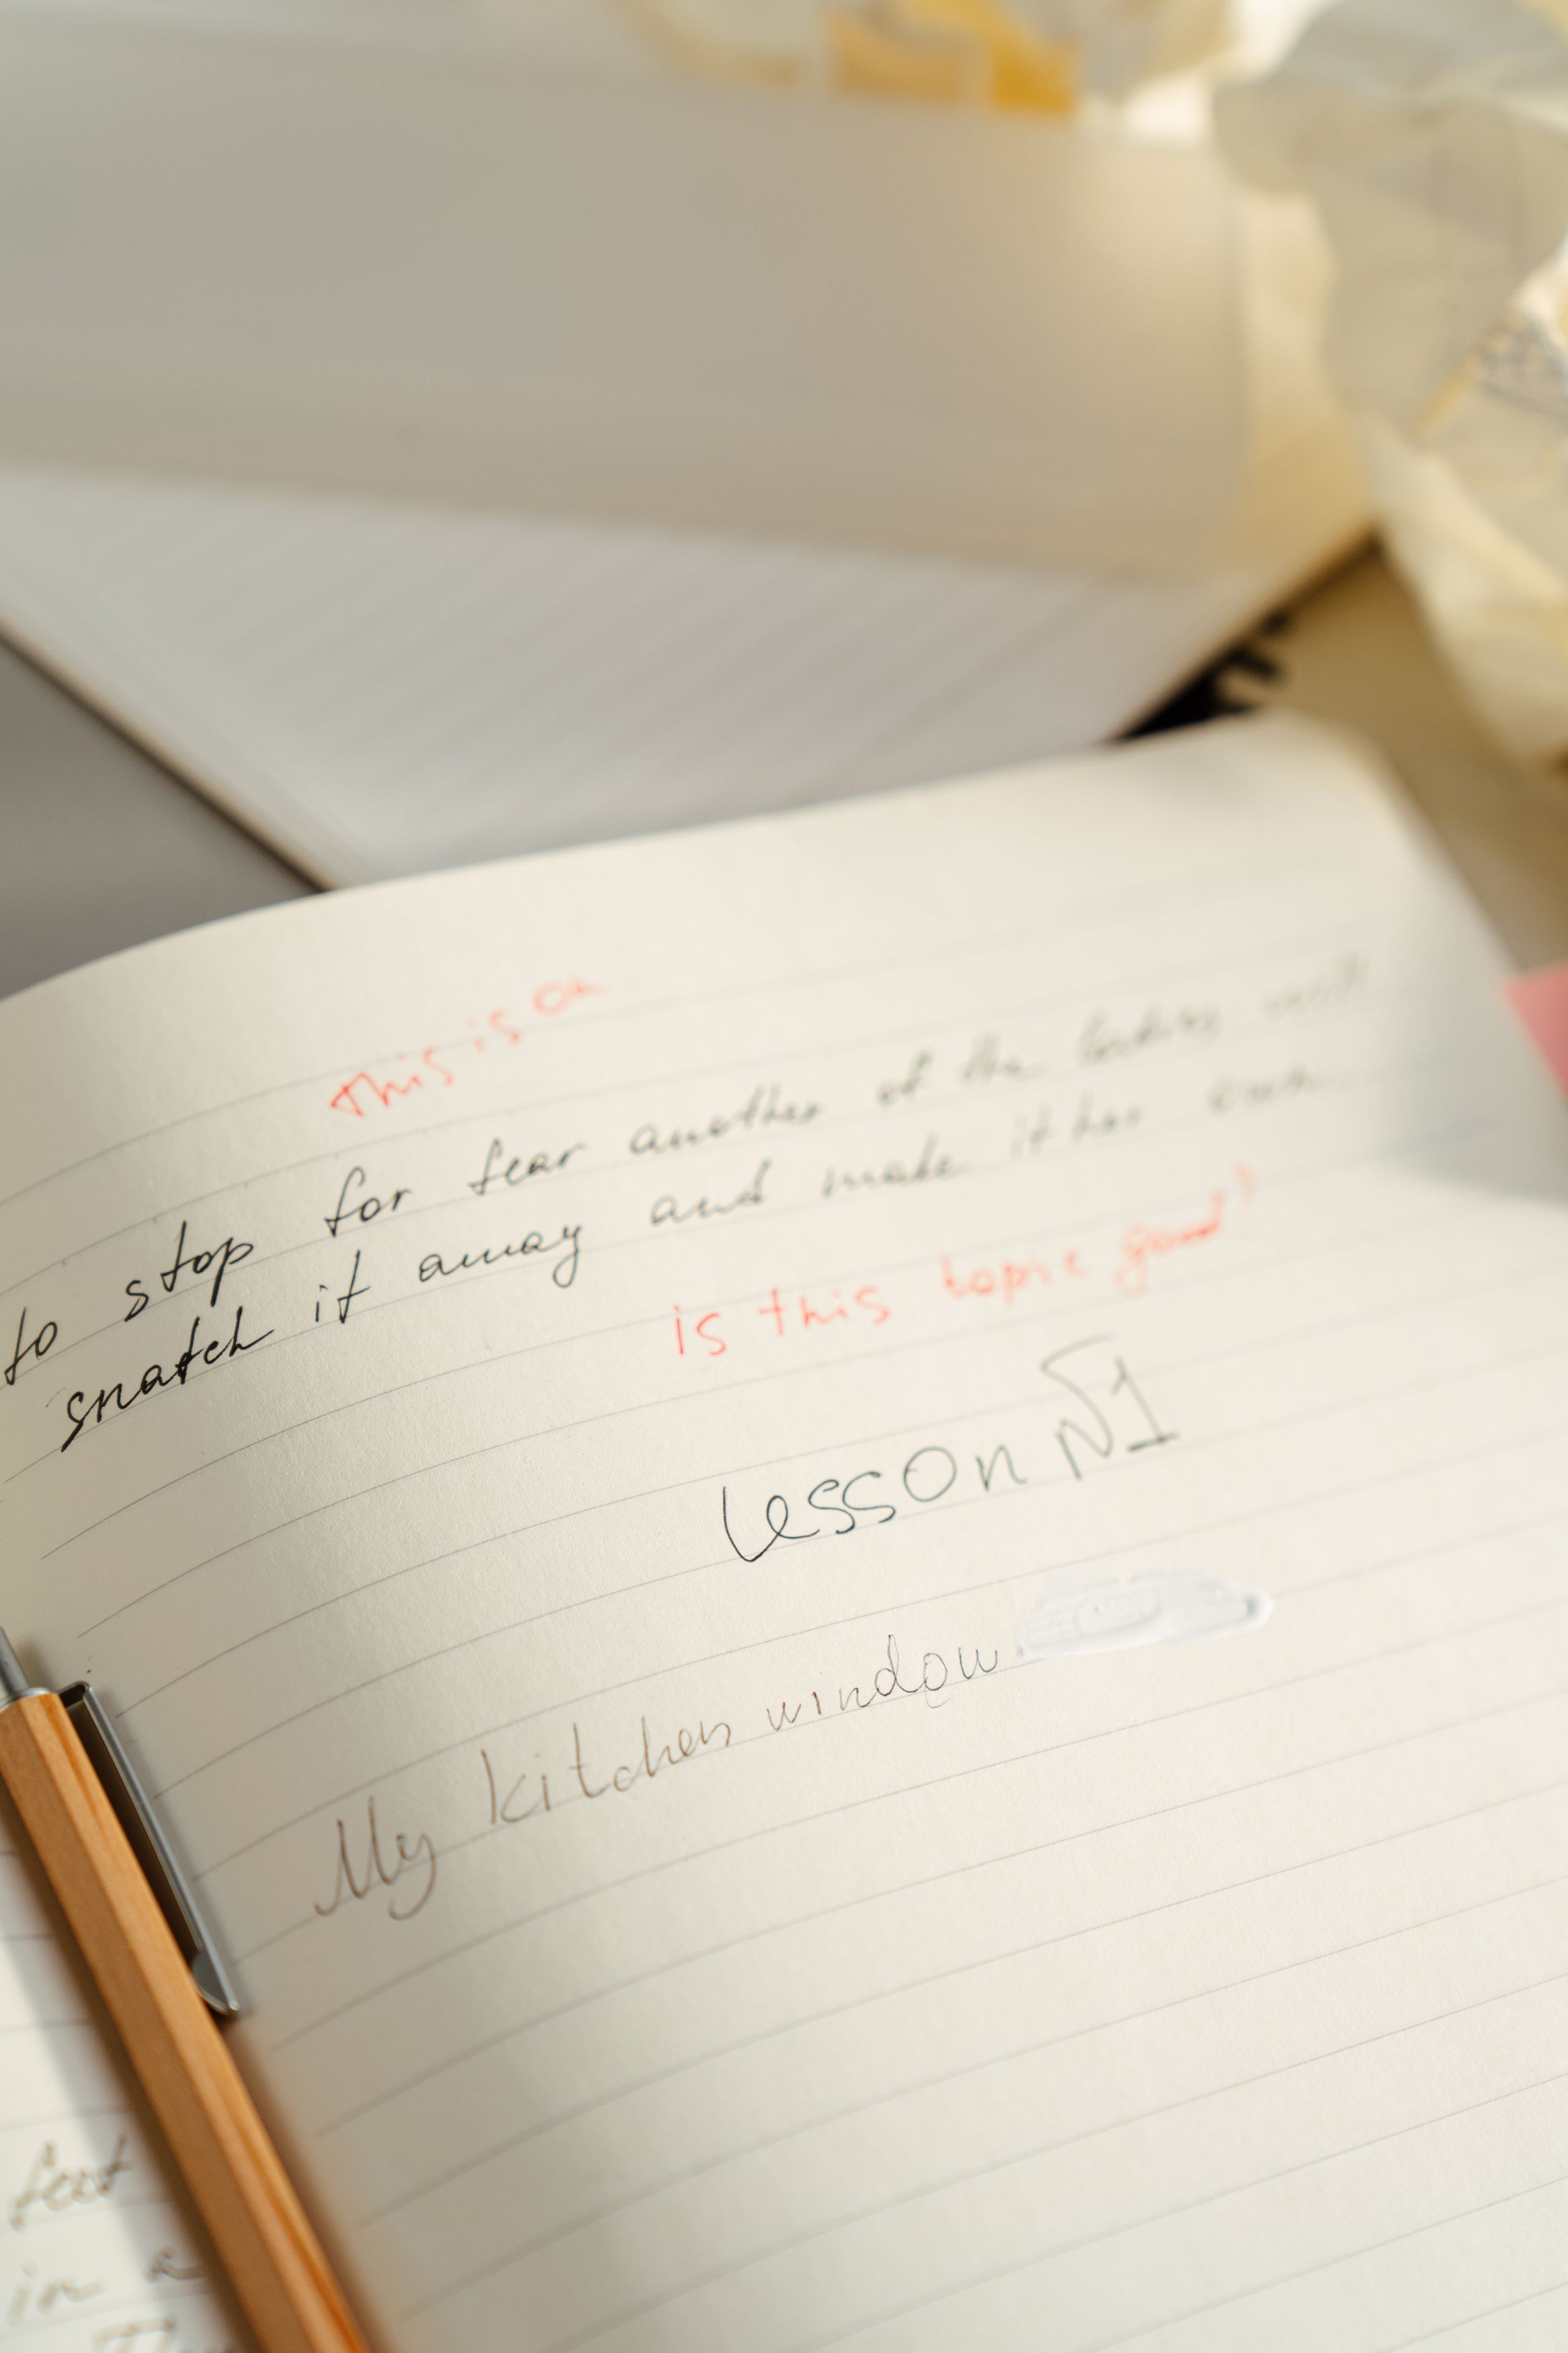 This is on
to stop for fear another of the ladies will
snatch it away and make it her own.
is this topic good?
Lesson №1
My kitchen window
feet
in a